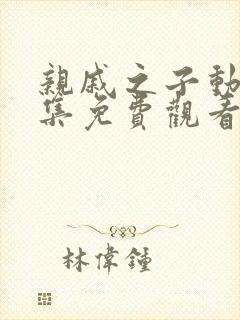 親戚之子動
集免費觀看
林偉鍾